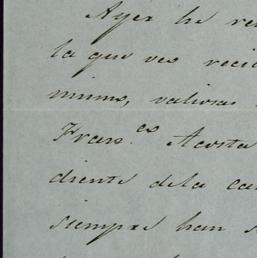 Ayer he re
la que ves reci
mismo, valiosas
Fran.cos Acosta
diente dela ca
siempre han s